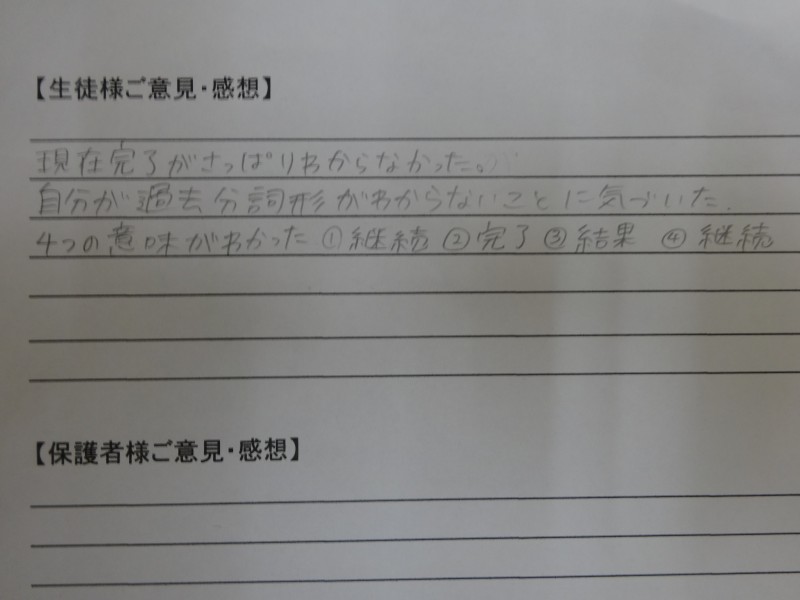 【生徒様ご意見・感想】
現在完了がさっぱりわからなかった。
自分が過去分詞形がわからないことに気づいた.
4つの意味がわかった ①継続 ②完了 ③結果 ④継続
【保護者様ご意見・感想】